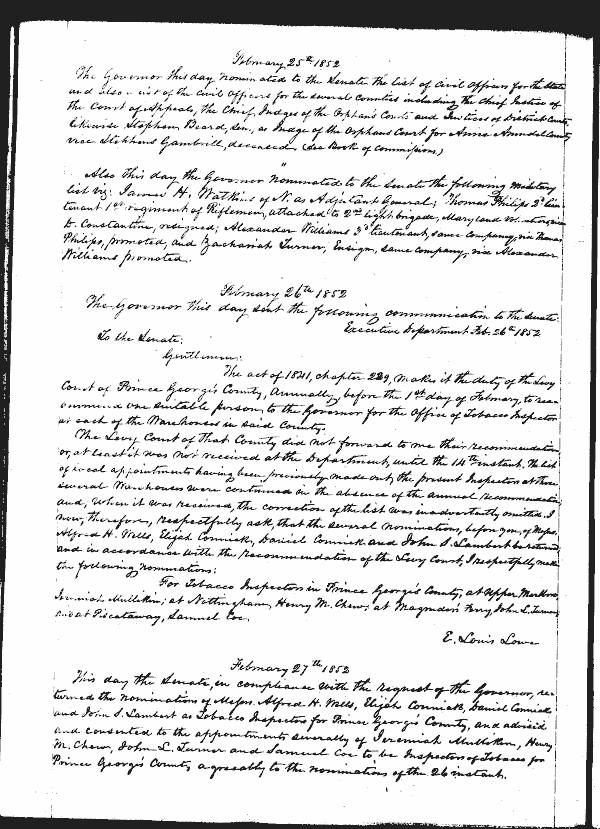 February 25th 1852
The Governor this day nominated to the Senate the list of Civil Officers for the State
and also a list of the Civil Officers for the several Counties including the Chief Justice of
the Court of Appeals, the Chief Judges of the Orphan's Courts and Justices of District Courts,
likewise Stephen Beard, Sen. as Judge of the Orphans Court for Anne Arundel County
vice Stephens Gambrill, deceased. (See Book of Commissions)
Also this day the Governor nominated to the Senate the following military
list viz: James H. Watkins of N. as Adjutant General; Thomas Philips 3d Lieu-
tenant 1st regiment of Riflemen, attached to 2nd light brigade, Maryland vol.
D. Constantine, resigned; Alexander Williams 3d lieutenant, same company, vice Thomas
Philips, promoted, and Zachariah Turner, Ensign, same company, vice Alexander
Williams promoted.
February 26th 1852
The Governor this day sent the following communication to the Senate.
Executive Department Feb. 26th 1852
To the Senate;
Gentlemen;
The act of 1841, chapter 229, makes it the duty of the Levy
Court of Prince George's County, Annually, before the 1st day of February, to rec-
ommend one suitable person, to the Governor for the Office of Tobacco Inspector
at each of the Warehouses in said County.
The Levy Court of that County did not forward to me their recommendation
or, at least it was not received at the Department, until the 14th instant. The list
of appointments having been previously made out, the present Inspectors at those
several Warehouses were continued in the absence of the annual recommendation;
and, when it was received, the correction of the list was inadvertently omitted. I
now, therefore, respectfully ask, that the several nominations, before you, of Messrs.
Alfred H. Wells, Elijah Connick, Daniel Connick and John S. Lambert be returned,
and in accordance with the recommendation of the Levy Court, I respectfully make
the following nominations:
For Tobacco Inspectors in Prince George's County, at Upper Marlboro,
Jeremiah Mullikin; at Nottingham, Henry M. Chew; at Magruder's Ferry John L. Turner
and at Piscataway, Samuel Coe.
E. Louis Lowe
February 27th 1852
This day the Senate, in compliance with the request of the Governor, re-
turned the nominations of Messrs. Alfred H. Wells, Elijah Connick, Daniel Connick
and John S. Lambert as Tobacco Inspectors for Prince George's County, and advised
and consented to the appointments severally of Jeremiah Mullikin, Henry
M. Chew, John L. Turner and Samuel Coe to be Inspectors of Tobacco for
Prince George's County agreeably to the nominations of the 26 instant.